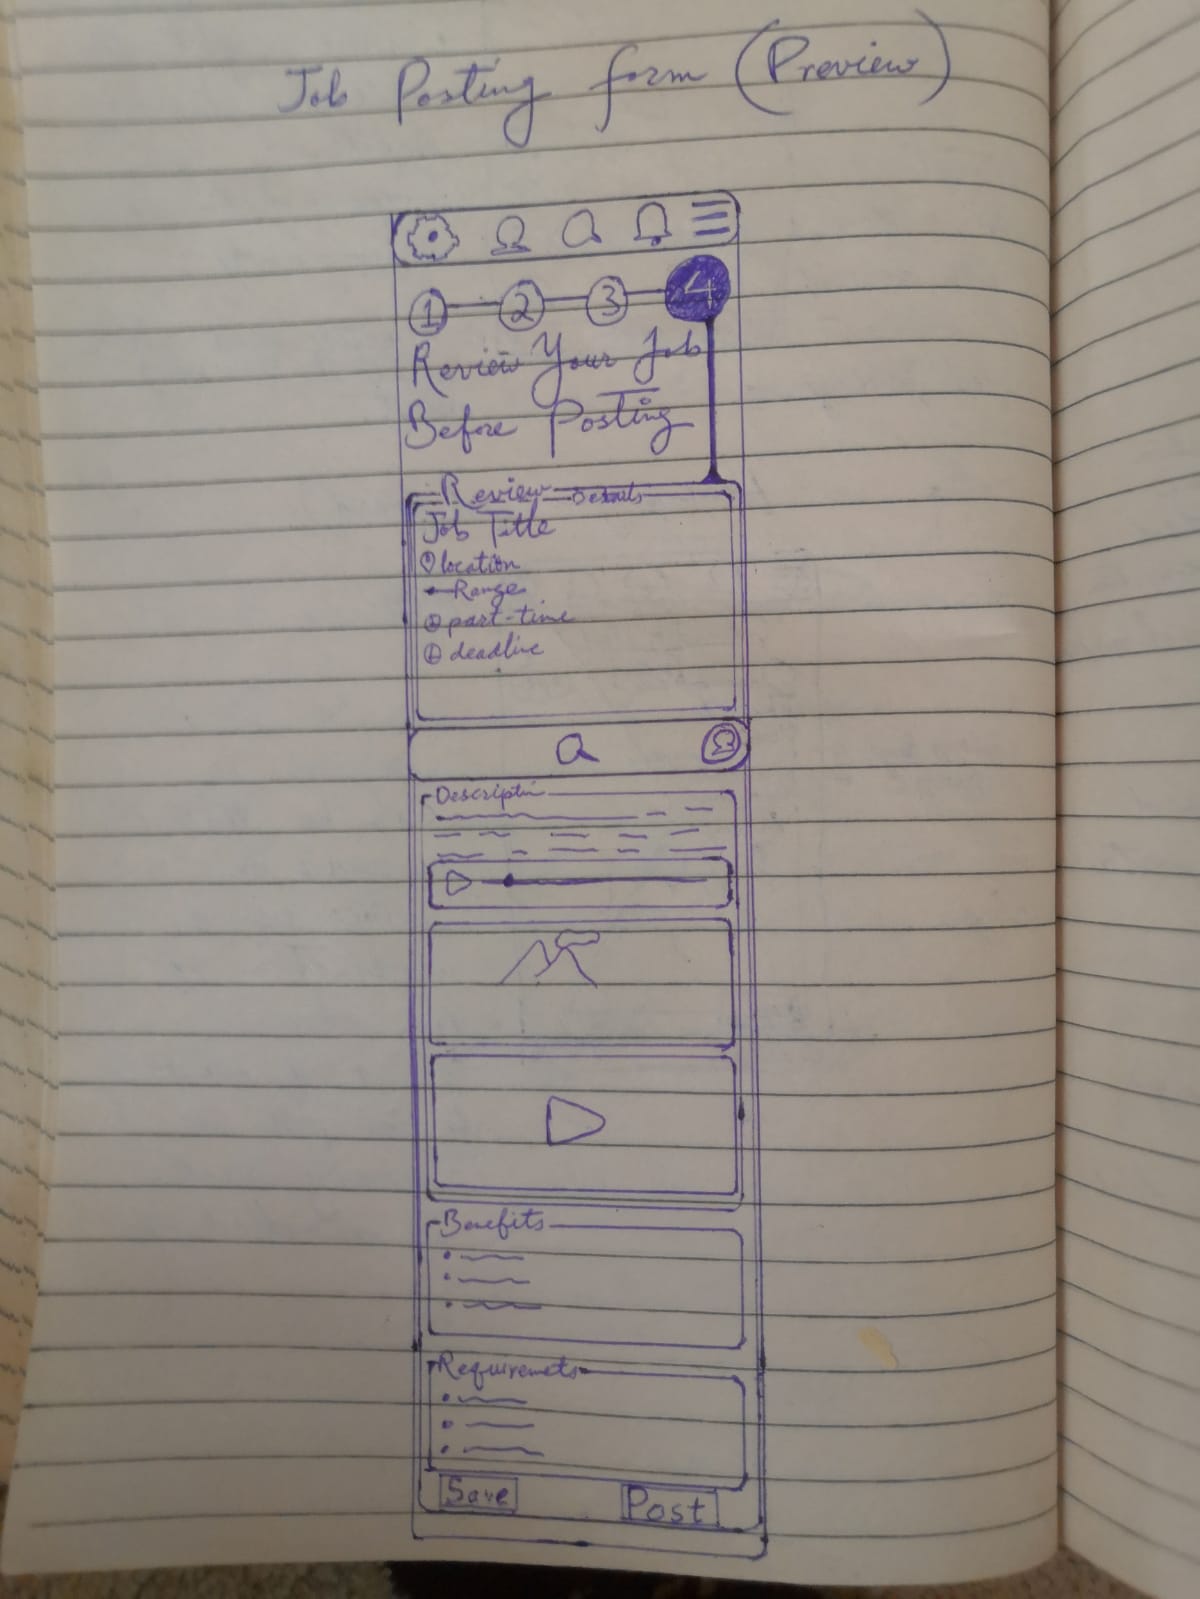 Job Posting form (Preview)
1 2 3 4
Review Your Job
Before Posting
Review Details
Job Title
location
Range
part-time
deadline
Descripti
Benefits
Requiremets
Save Post